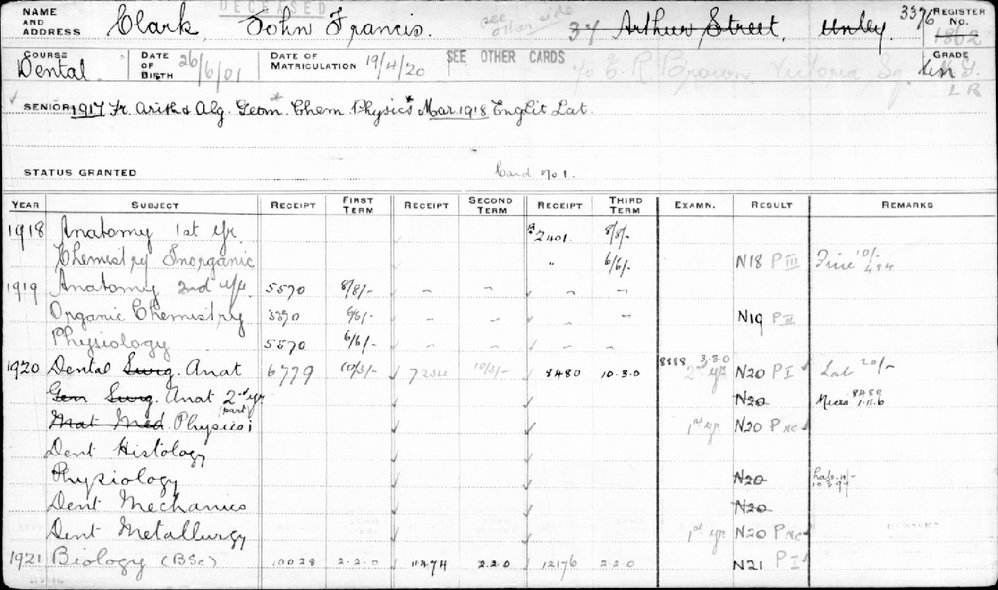 DECEASED
NAME AND ADDRESS Clark John Francis. see other side 34 Arthur Street, Unley. 3376 REGISTER No. 1862
COURSE Dental DATE OF BIRTH 26/6/01 DATE OF MATRICULATION 19/4/20 SEE OTHER CARDS c/o E. R. Brown Victoria Sq. GRADE
LR
SENIOR 1917 Fr. Arith & Alg. Geom.* Chem. Physics* Mar. 1918 Eng Lit Lat.
STATUS GRANTED Card No 1.
YEAR SUBJECT RECEIPT FIRST TERM RECEIPT SECOND TERM RECEIPT THIRD TERM EXAMN. RESULT REMARKS
1918 Anatomy 1st yr. 2401 8/8/-
Chemistry Inorganic " 6/6/- N18 P III Fine 10/- 484
1919 Anatomy 2nd yr. 5570 8/8/- - - - -
Organic Chemistry 5570 6/6/- - - - - N19 P II
Physiology 5570 6/6/- - - - -
1920 Dental Surg. Anat 6779 10/3/- 10/3/- 8480 10.3.0 8888 3.3.0 2nd yr N20 P I Lab 20/-
Gen Surg. Anat 2nd yr. (part) N20 Micros 8480
Mat Med Physics 1st yr N20 P NC
Dent Histology
Physiology N20
Dent Mechanics N20
Dent Metallurgy 1st yr N20 P NC
1921 Biology (BSc) 10028 2.2.0 11474 2.2.0 12176 2.2.0 N21 P I